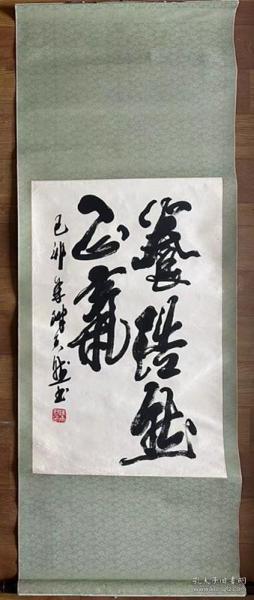 養浩然
正氣
己卯
書
孔夫子旧书网